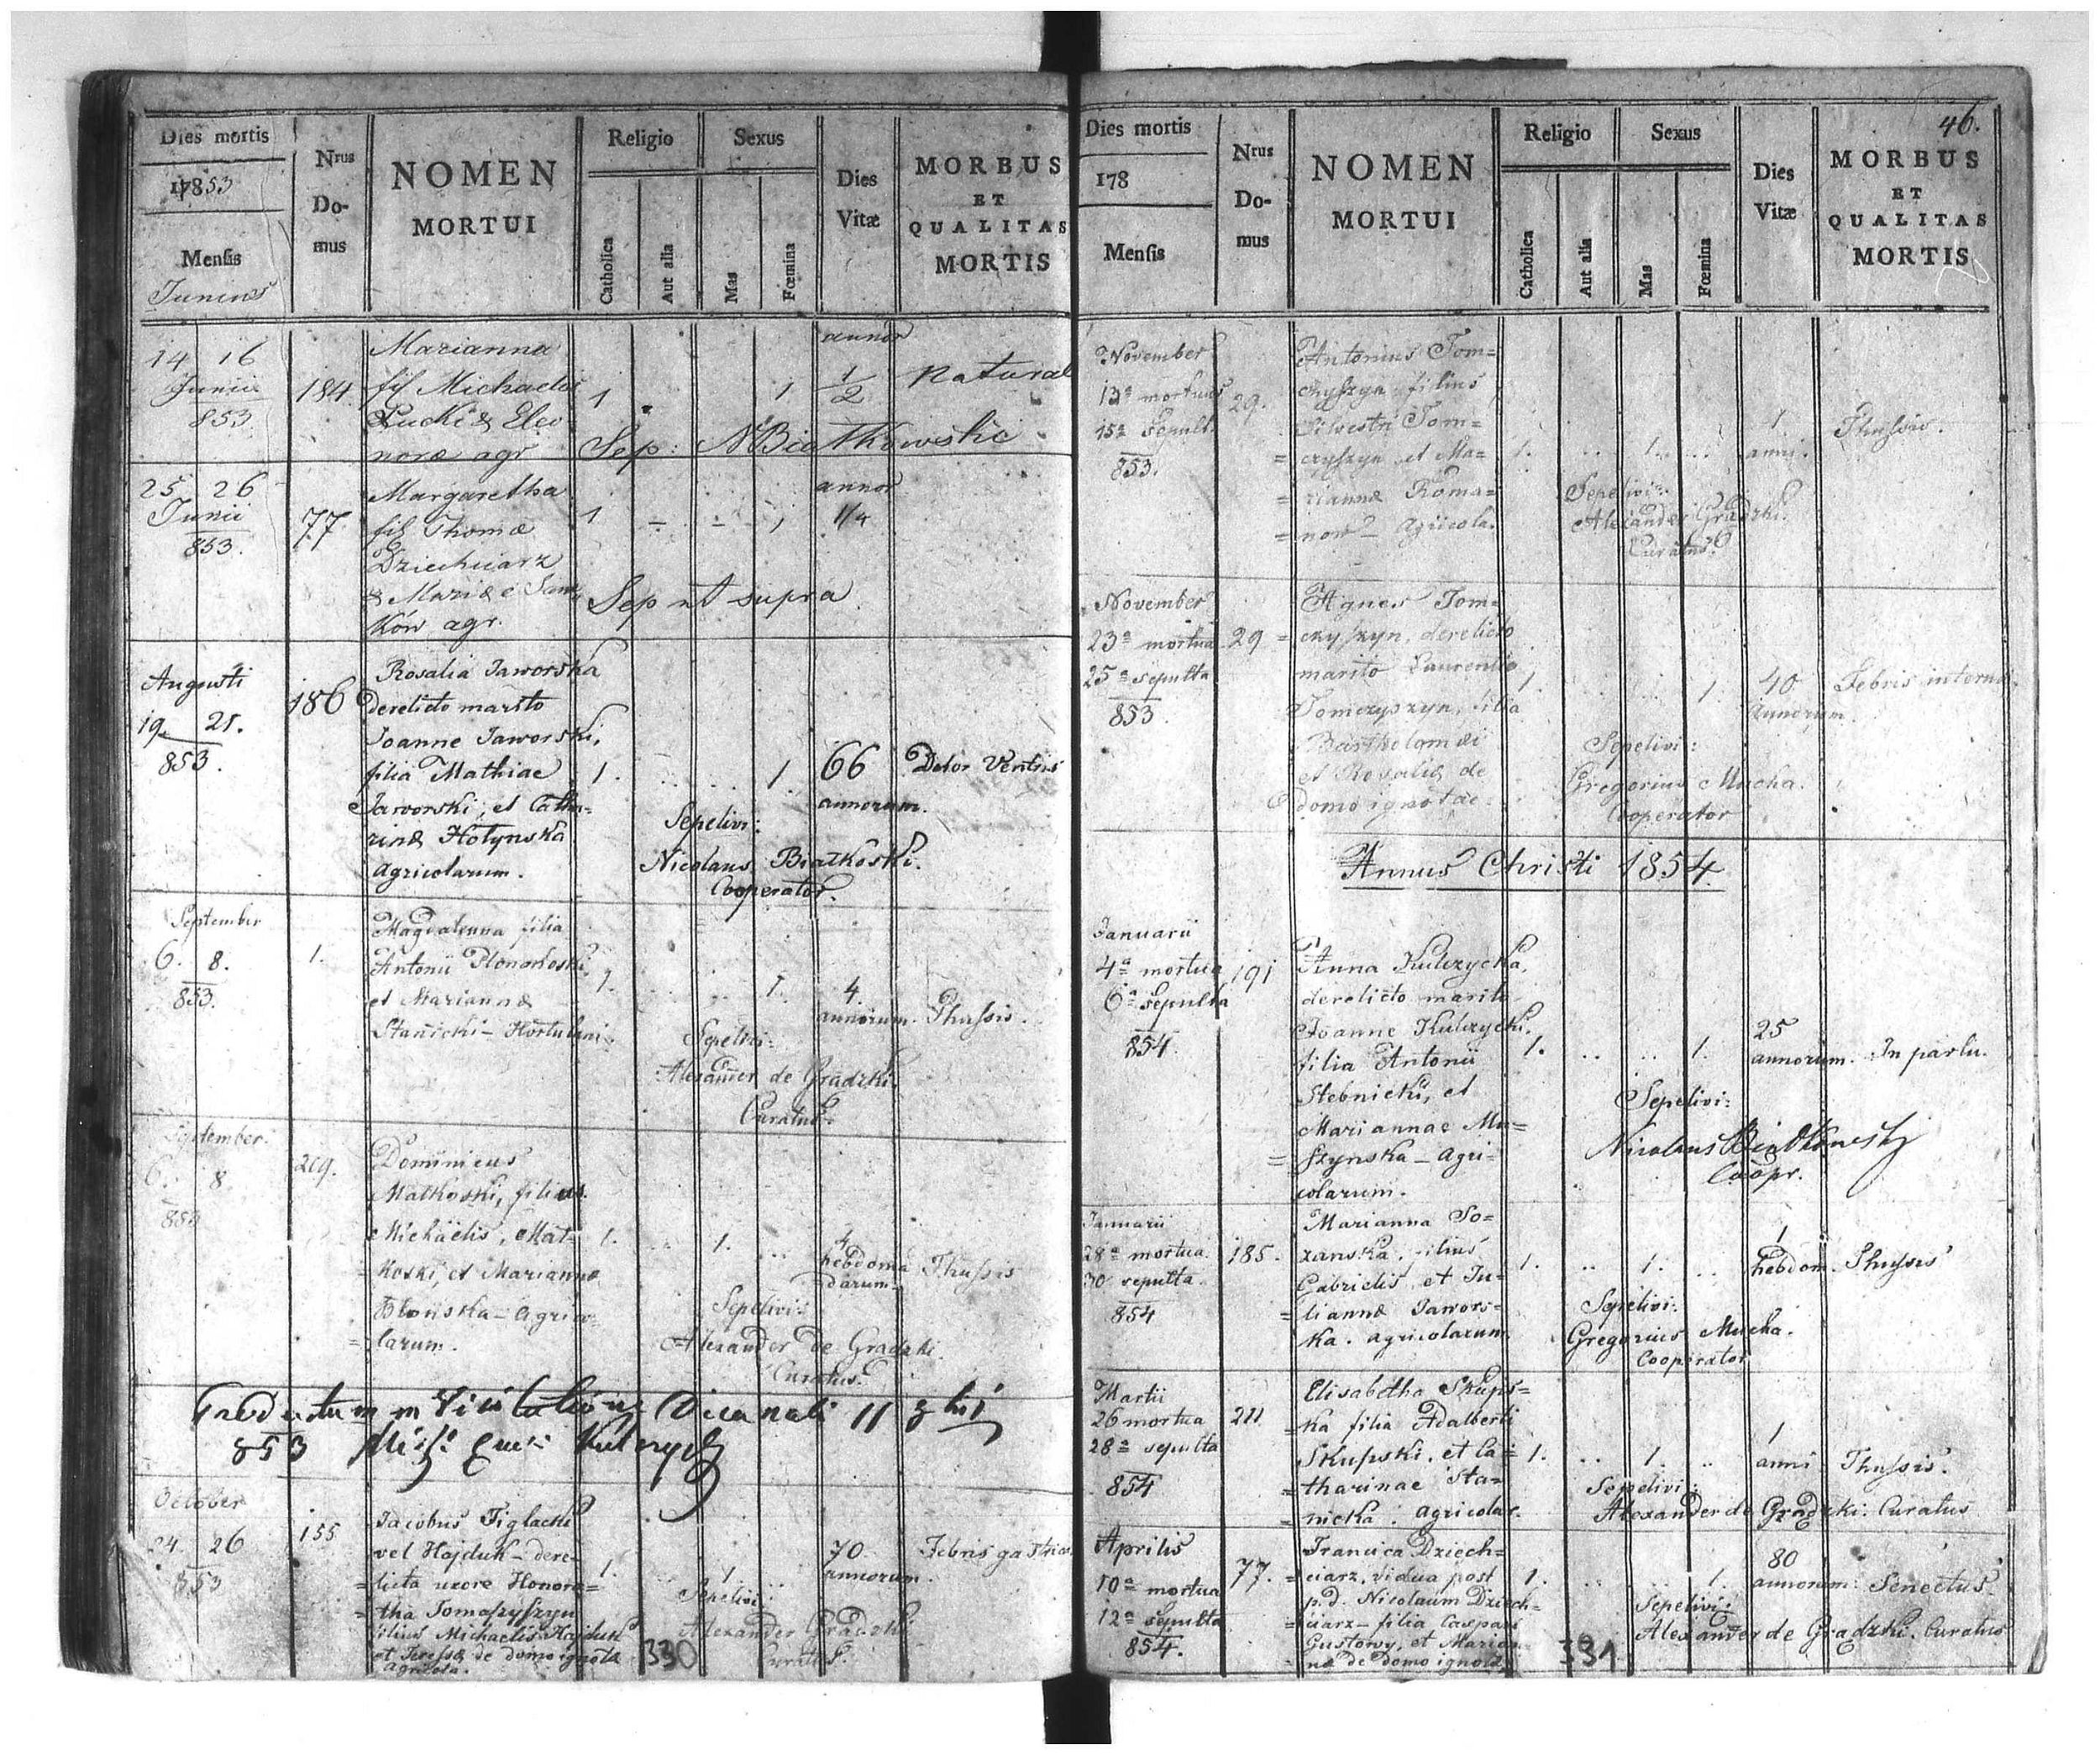 Dies mortis
17853
Mensis
Junius
Nrus
Do-
mus
NOMEN
MORTUI
Religio
Catholica
Aut alia
Sexus
Mas
Fœmina
Dies
Vitæ
MORBUS
ET
QUALITAS
MORTIS
14 16
Junii
853
184.
Marianna
fil Michaelis
Łucki & Eleo
noræ agr
1
1
annor
1/2
Natural
Sep: N Białkowskie
25 26
Junii
853.
77
Margaretha
fil Thomæ
Dziechciarz
& Mariæ e
ków agr.
1 - - 1
annor
1/4
Sep ut supra
Augusti
19 21.
853.
186
Rosalia Jaworska
derelicto marito
Joanne Jaworski,
filia Mathiae
Jaworski, et Catha-
rinæ Hołynska
agricolarum.
1. 1.
66
annorum.
Dolor Ventris
Sepelivi:
Nicolaus Białkoski.
Cooperator.
September
6. 8.
853.
1.
Magdalenna filia
Antonii
et Mariannæ
Stanicki - Hortulani
1. 1.
4.
annorum.
Thussis.
Sepelivi:
Alexander de Gradzki
Curatus.
September.
6. 8
853
209.
Dominicus
Małkoski, filius
Michäelis, Mał-
koski, et Mariannæ
Błonska - Agrico-
= larum.
1. 1.
4
hebdoma
darum.
Thussis
Sepelivi:
Alexander de Gradzki
Curatus.
Productum in Visitatione Decanali 11 8bri
853
October
24. 26
853
155
Jacobus Figlacki
vel Hajduk - dere-
= licta uxore Honora=
= tha Tomaszyszyn
filius Michaelis Hajduk
et Teressæ de domo ignota
agricola.
1. 1.
70
annorum
Febris gastrica
Sepelivi:
Alexander Gradzki
Curatus.
330
46.
Dies mortis
178
Mensis
Nrus
Do-
mus
NOMEN
MORTUI
Religio
Catholica
Aut alia
Sexus
Mas
Fœmina
Dies
Vitæ
MORBUS
ET
QUALITAS
MORTIS
November
13a mortuus
15a Sepult.
853.
29.
Antonius Tom=
czyszyn filius
Silvestri Tom=
= czyszyn et Ma=
= riannæ Roma=
= now - agricola.
1. 1.
1.
anni.
Thussis.
Sepelivi:
Alexander Gradzki.
Curatus.
November
23a mortua
25a sepulta
853.
29
Agnes Tom=
= czyszyn, derelicto
marito Laurentio
Tomczyszyn, filia
Bartholomæi
et Rosaliæ de
domo ignotae.
1. 1.
40
annorum.
Febris interna.
Sepelivi:
Gregorius Mucha.
Cooperator
Annus Christi 1854.
Januarii
4a mortua
6a Sepulta
854.
191
Anna Kulczycka,
derelicto marito
Joanne Kulczycki,
filia Antonii
Stebnicki, et
Mariannae Mu=
= szynska - Agri-
colarum.
1. 1.
25
annorum.
In partu.
Sepelivi:
Nicolaus Białkowski
Coopr.
Januarii
28a mortua.
30 sepulta.
854
185.
Marianna So=
zanska. filius
Gabrielis, et Ju-
= liannæ Jawors-
ka. agricolarum
1. 1.
1
hebdom.
Thussis
Sepelivi:
Gregorius Mucha.
Cooperator
Martii
26 mortua
28a sepulta
854
211
Elisabetha Skups=
= ka filia Adalberti
Skupski, et Ca=
= tharinae Sta=
= nicka. agricolae.
1. 1.
1
anni
Thussis.
Sepelivi:
Alexander de Gradzki. Curatus
Aprilis
10a mortua
12a Sepulta
854.
77.
Francica Dziech=
= ciarz, vidua post
p.d. Nicolaum Dziech=
= ciarz - filia Caspari
Gustowy, et Marian
næ de domo ignota
1. 1.
80
annorum:
Senectus.
Sepelivi:
Alexander de Gradzki. Curatus
331